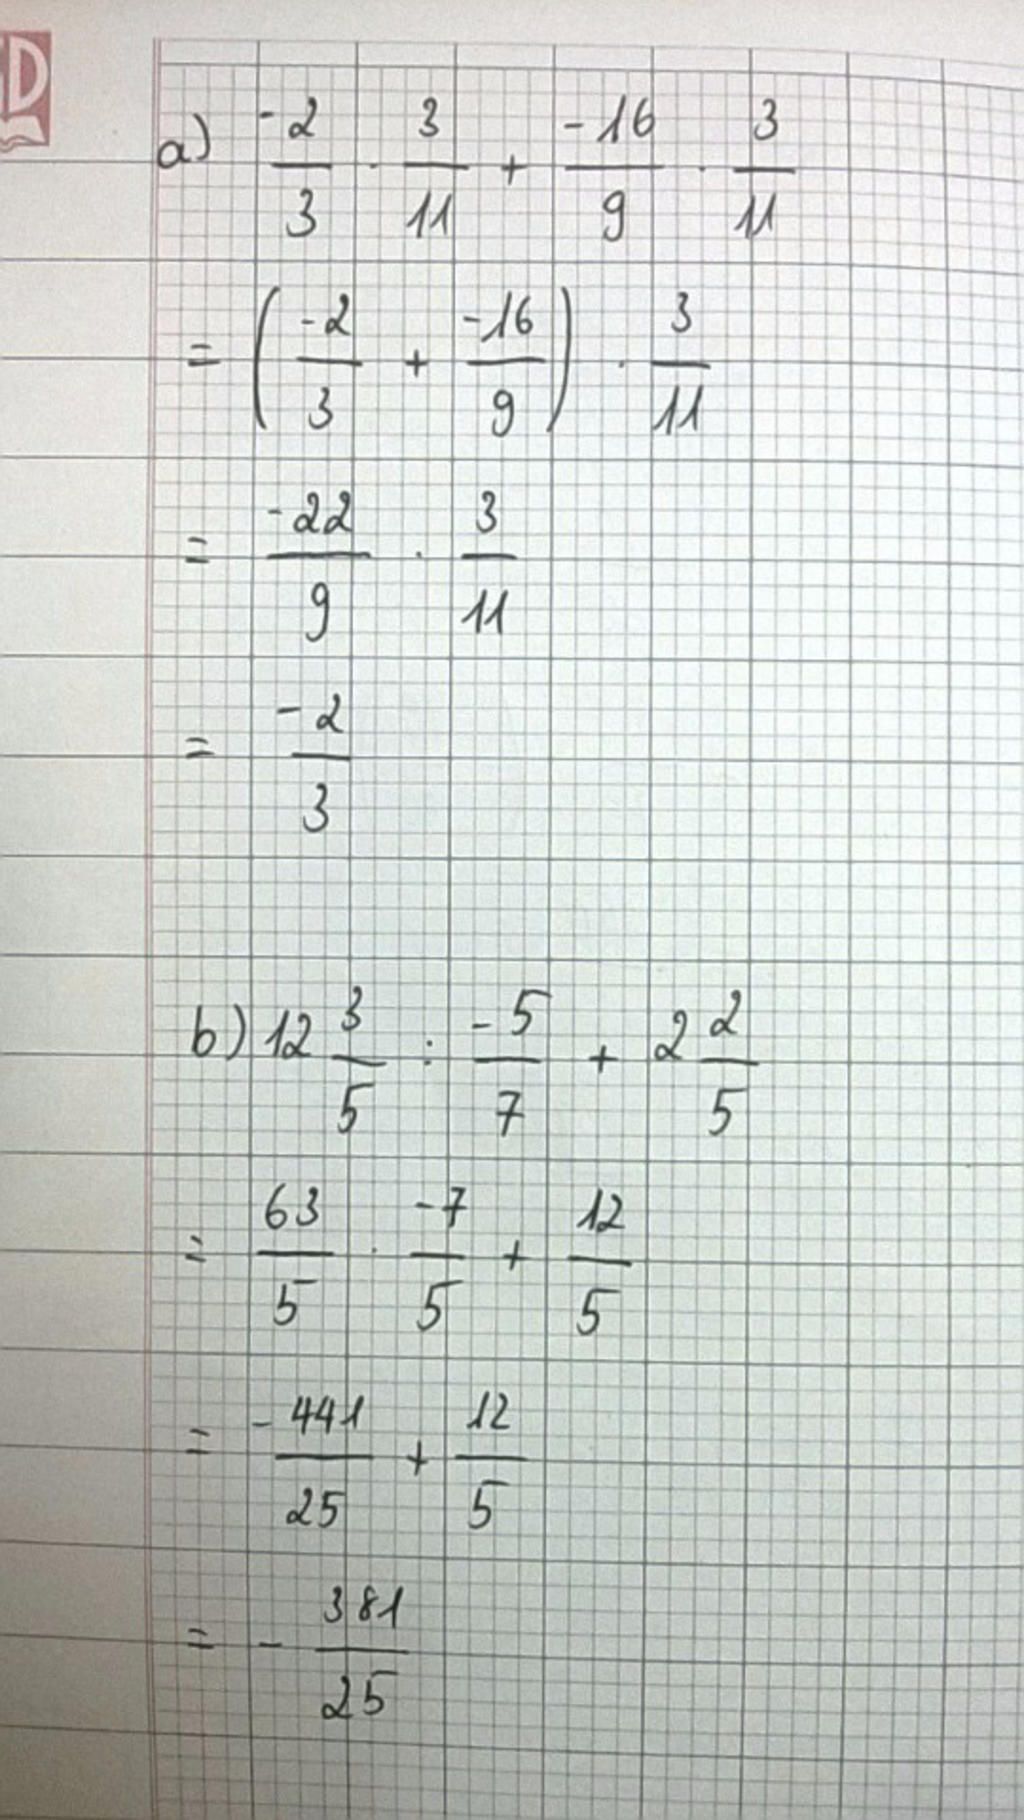 D
a) -2/3 · 3/11 + -16/9 · 3/11
= (-2/3 + -16/9) · 3/11
= -22/9 · 3/11
= -2/3
b) 12 3/5 : -5/7 + 2 2/5
= 63/5 · -7/5 + 12/5
= -441/25 + 12/5
= - 381/25